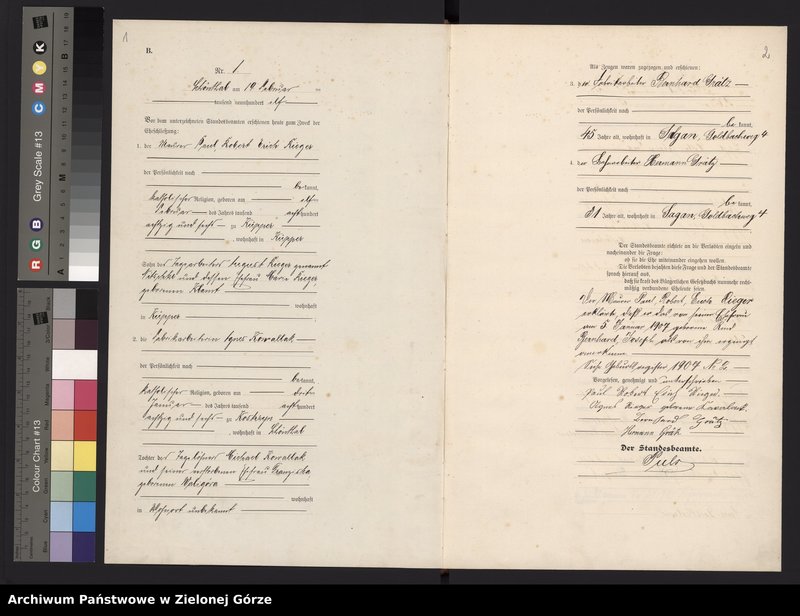 1
B.
Nr. 1
Schönthal am 19 Februar
tausend neunhundert elf
Vor dem unterzeichneten Standesbeamten erschienen heute zum Zweck der
Eheschließung:
1. der Maurer Paul Robert Erich Rieger
der Persönlichkeit nach
be kannt,
katholischer Religion, geboren am elften
Februar des Jahres tausend achthundert
achtzig und sechs zu Küpper
, wohnhaft in Küpper
Sohn des Tagearbeiters August Rieger genannt
und dessen Ehefrau Marie Rieger
geborenen
wohnhaft
in Küpper
2. die Fabrikarbeiterin Agnes Kowallak
der Persönlichkeit nach
be kannt,
katholischer Religion, geboren am dritten
Januar des Jahres tausend achthundert
achtzig und sechs zu
, wohnhaft in Schönthal
Tochter des Tagelöhners Michael Kowallak
und seiner verstorbenen Ehefrau Franziska
geborenen
wohnhaft
in Wohnort unbekannt
2
Als Zeugen waren zugezogen und erschienen:
3. der Fabrikarbeiter Bernhard Grätz
der Persönlichkeit nach
be kannt,
45 Jahre alt, wohnhaft in Sagan, Goldbachweg 4
4. der Hermann Grätz
der Persönlichkeit nach
be kannt,
21 Jahre alt, wohnhaft in Sagan, Goldbachweg 4
Der Standesbeamte richtete an die Verlobten einzeln und
nacheinander die Frage:
ob sie die Ehe miteinander eingehen wollen.
Die Verlobten bejahten diese Frage und der Standesbeamte
sprach hierauf aus,
daß sie kraft des Bürgerlichen Gesetzbuchs nunmehr recht-
mäßig verbundene Eheleute seien.
Der Maurer Paul Robert Erich Rieger
erklärte, daß er das von seiner Ehefrau
am 5 Januar 1907 geborene Kind
Bernhard, Joseph als von ihm erzeugt
anerkenne
Siehe Geburtsregister 1907 N.
Vorgelesen, genehmigt und unterschrieben
Paul Robert Erich Rieger
Agnes Rieger geborene Kowallak
Bernhard Grätz
Hermann Grätz
Der Standesbeamte.
Grey Scale #13
Colour Chart #13
R G B C M Y K
A M B
Blue Cyan Green Yellow Red Magenta White 3/Color Black
Archiwum Państwowe w Zielonej Górze